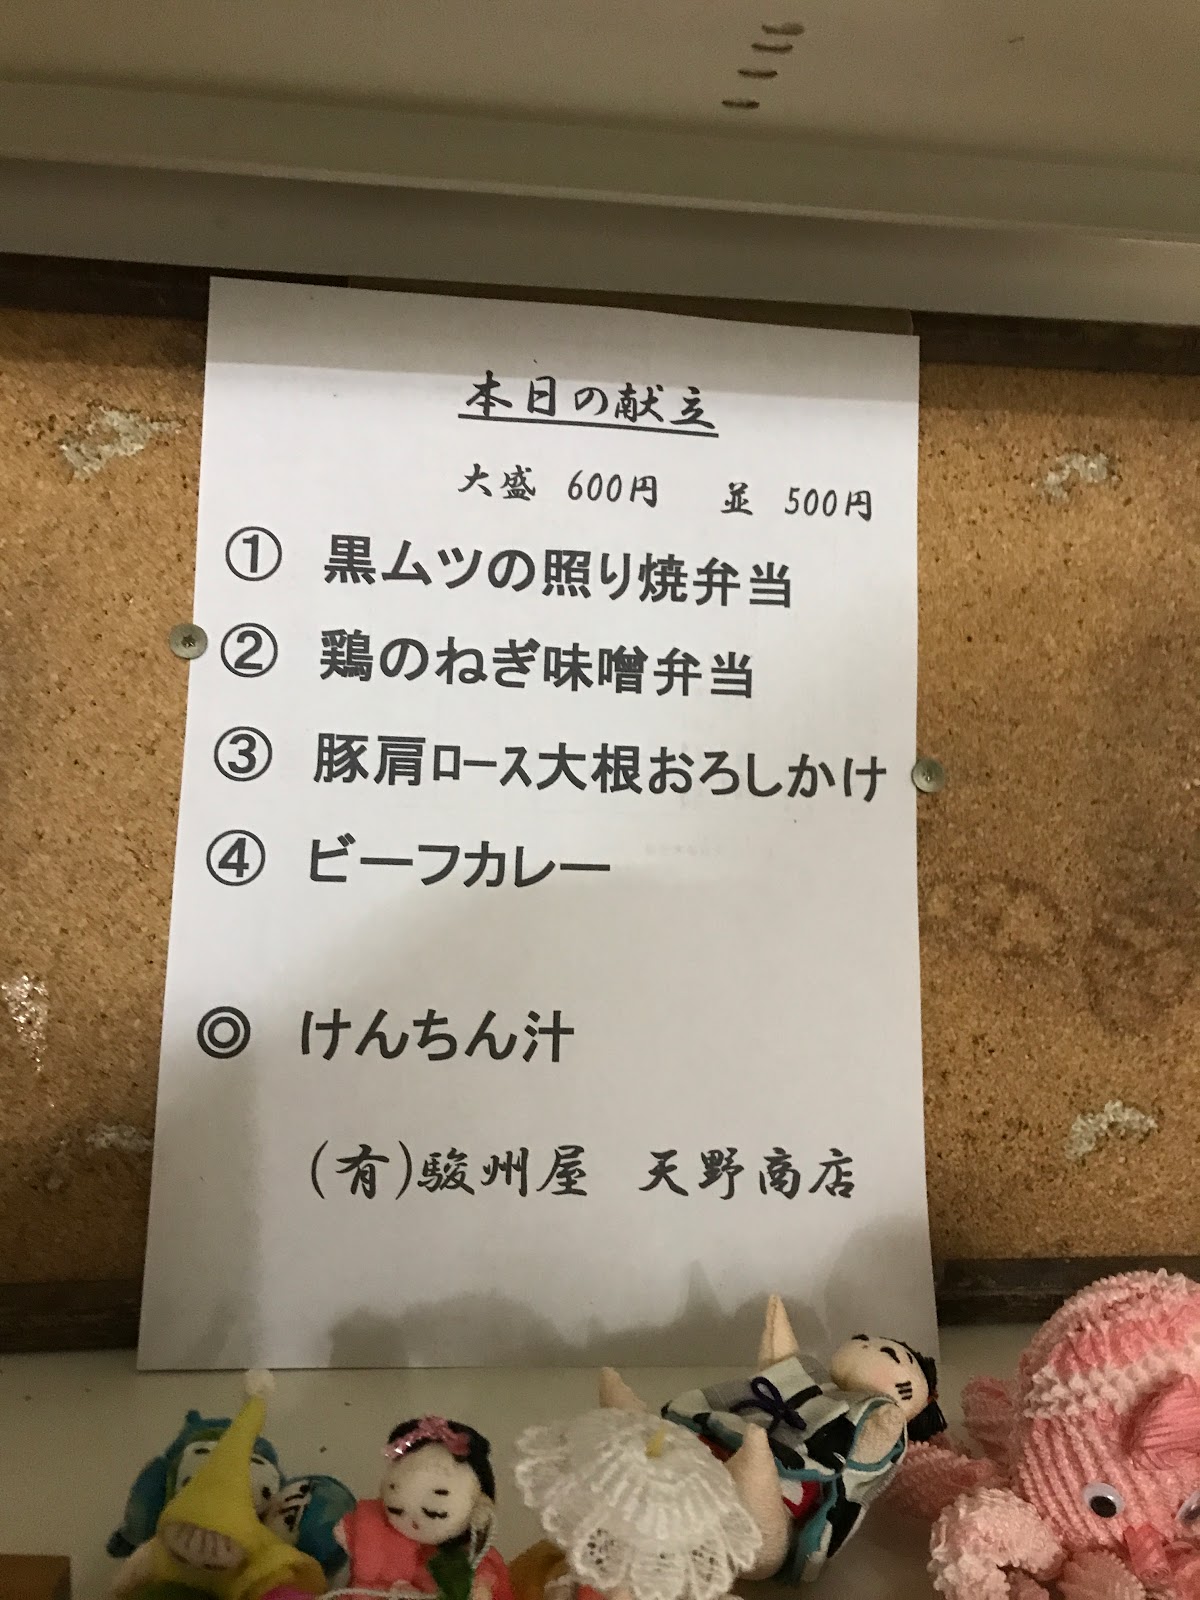 本日の献立
大盛 600円 並 500円
① 黒ムツの照り焼弁当
② 鶏のねぎ味噌弁当
③ 豚肩ﾛｰｽ大根おろしかけ
④ ビーフカレー
◎ けんちん汁
(有)駿州屋 天野商店